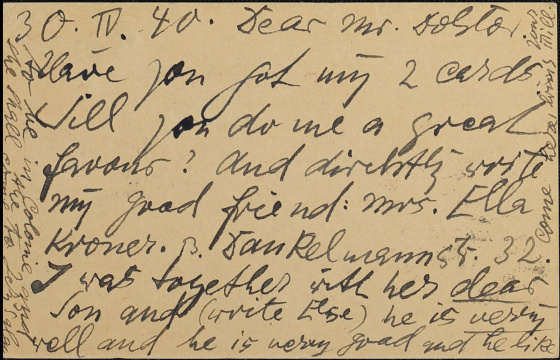 30. IV. 40. Dear Mr. Doktor
Have you got my 2 cards.
Will you do me a great
favour? And direktly write
my good friend: Mrs. Ella
Kroner. B. Dankelmannst. 32.
I was together with her dear
Son and (write Else) he is verry
well and he is verry good and he like
to me in Colonie and